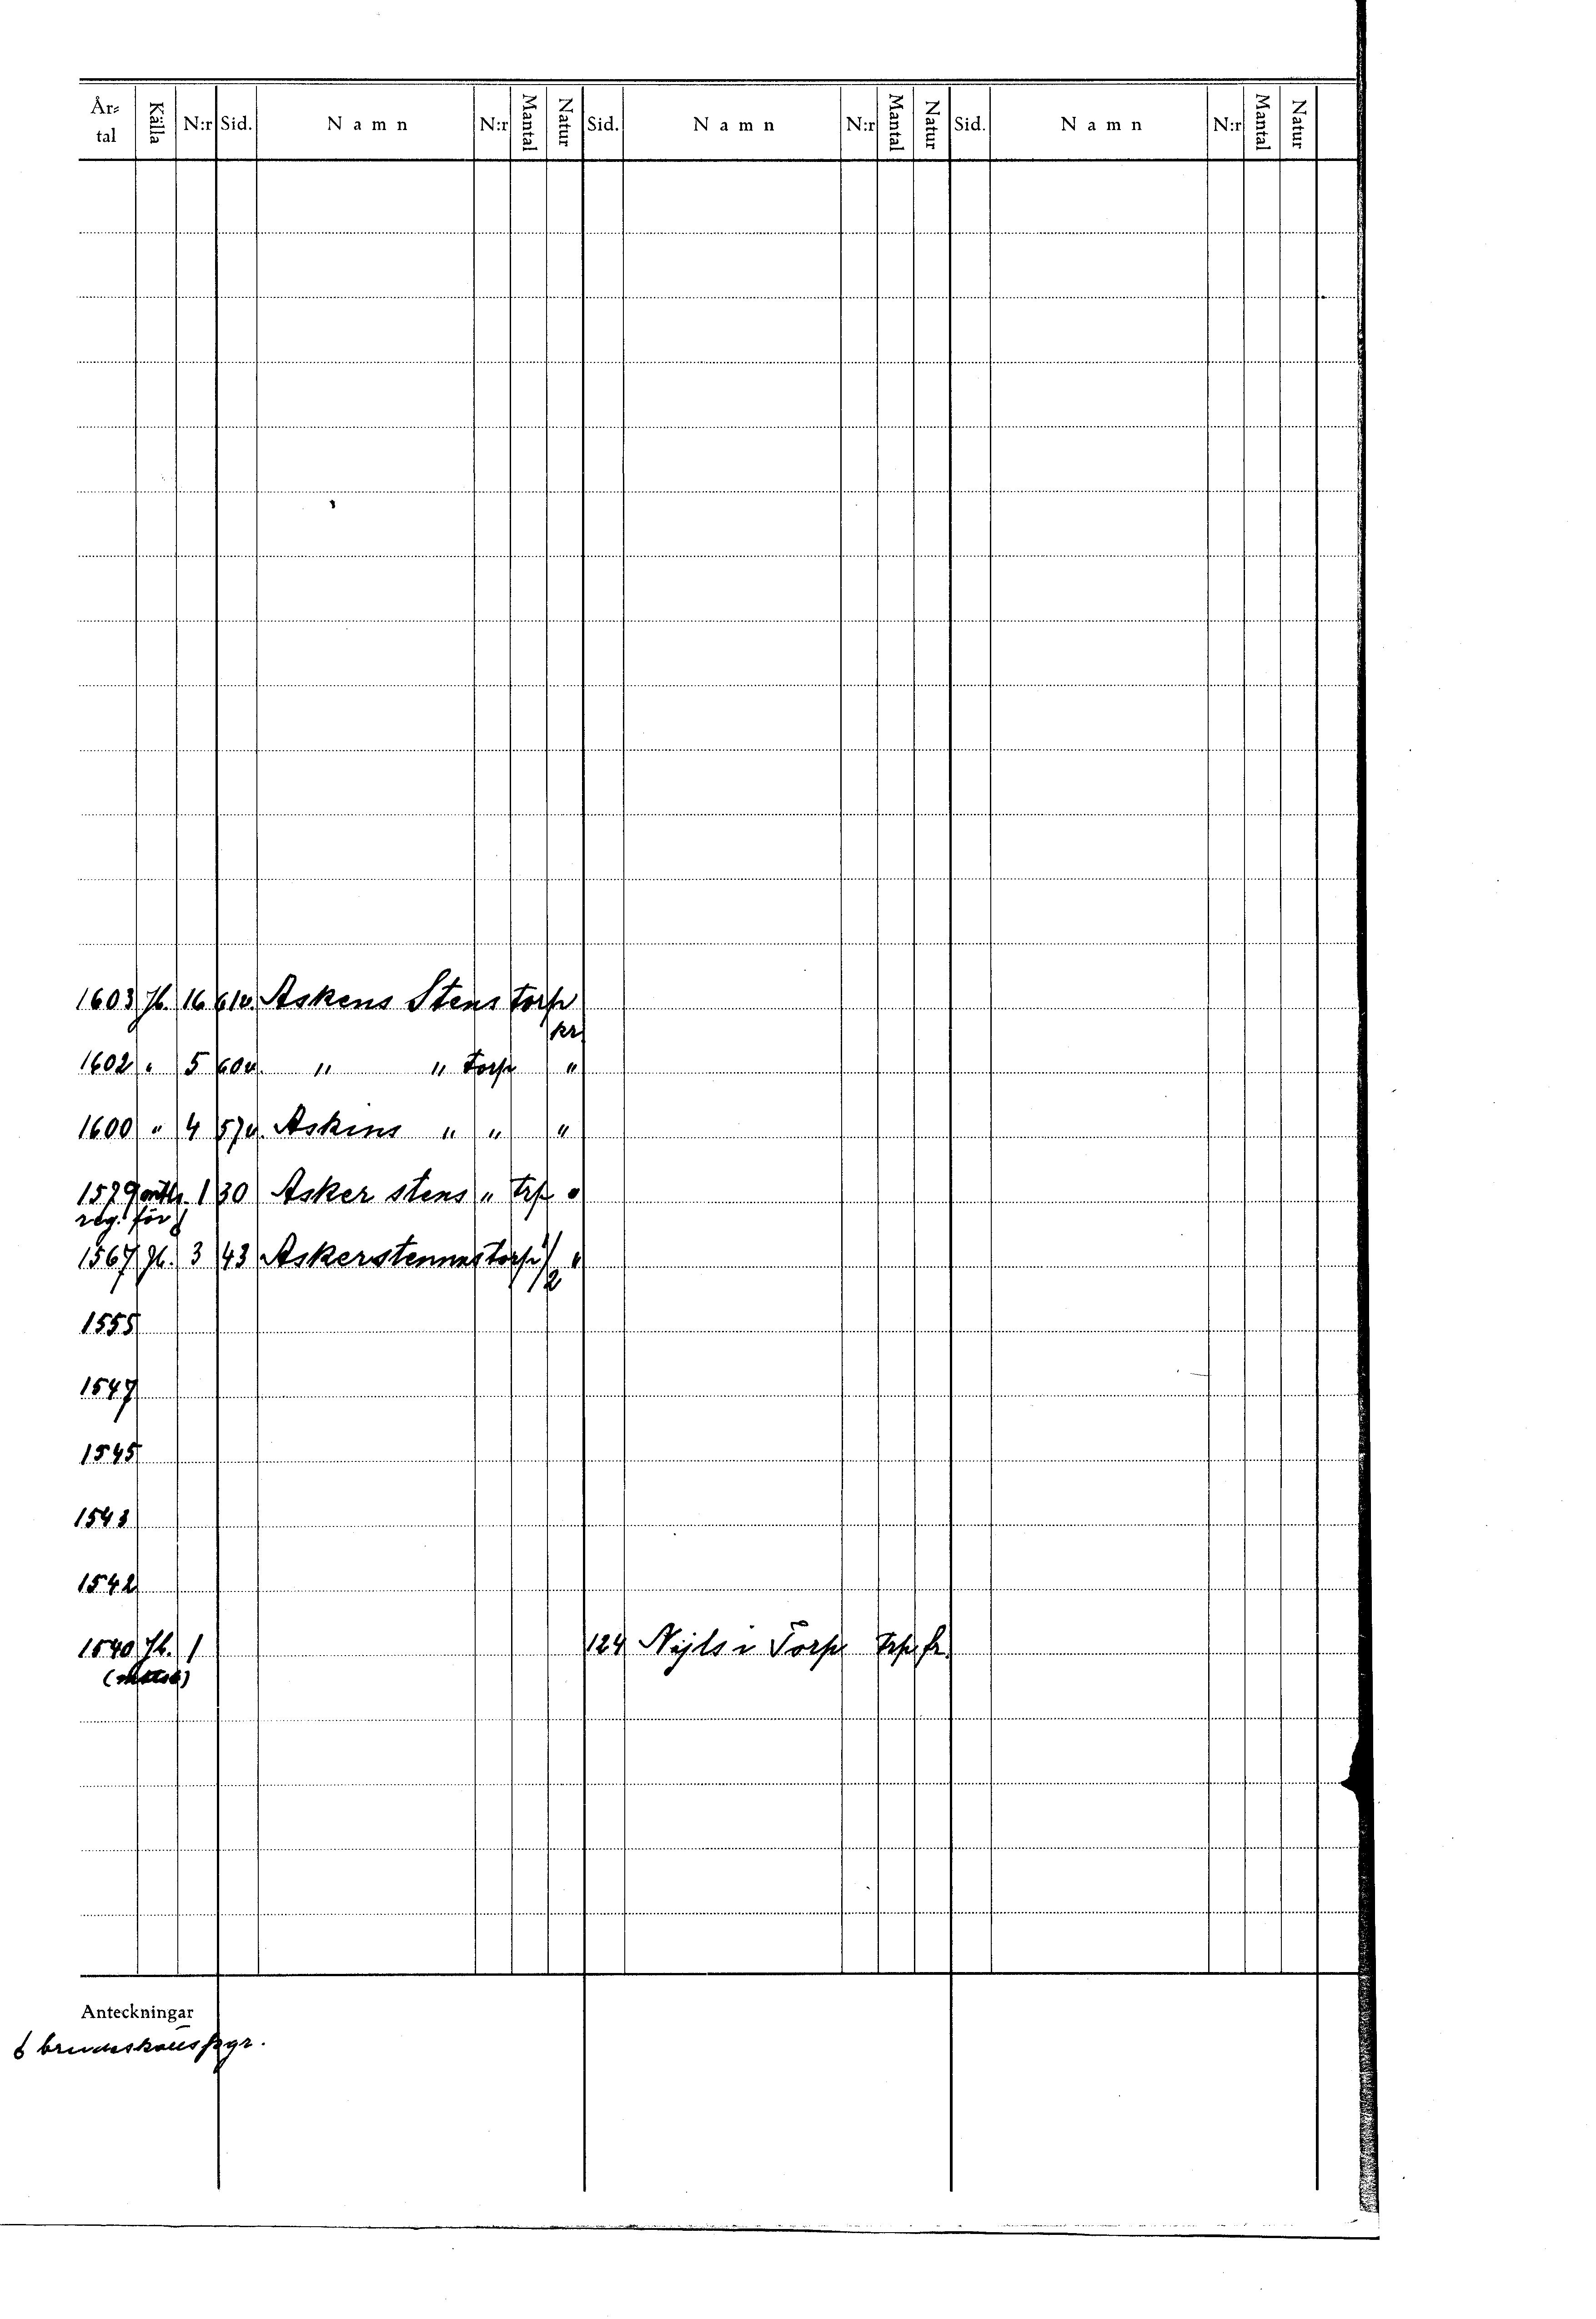 År= tal Källa N:r Sid. Namn N:r Mantal Natur Sid. Namn N:r Mantal Natur Sid. Namn N:r Mantal Natur
1603 Jb. 16 61v. Askens Stens torp
kr
1602 " 5 60v. " " torp "
1600 " 4 57v. Askins " " "
1579 1 30 Asker stens " trp "
reg. för
1567 Jb. 3 43 Askerstennstorp 1/2 "
1555
1547
1545
1543
1542
1540 Jb. 1 124 Nijls i Torp trp fr
Anteckningar